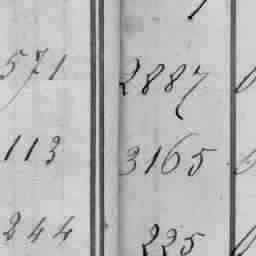 571 2887
113 3165
244 225